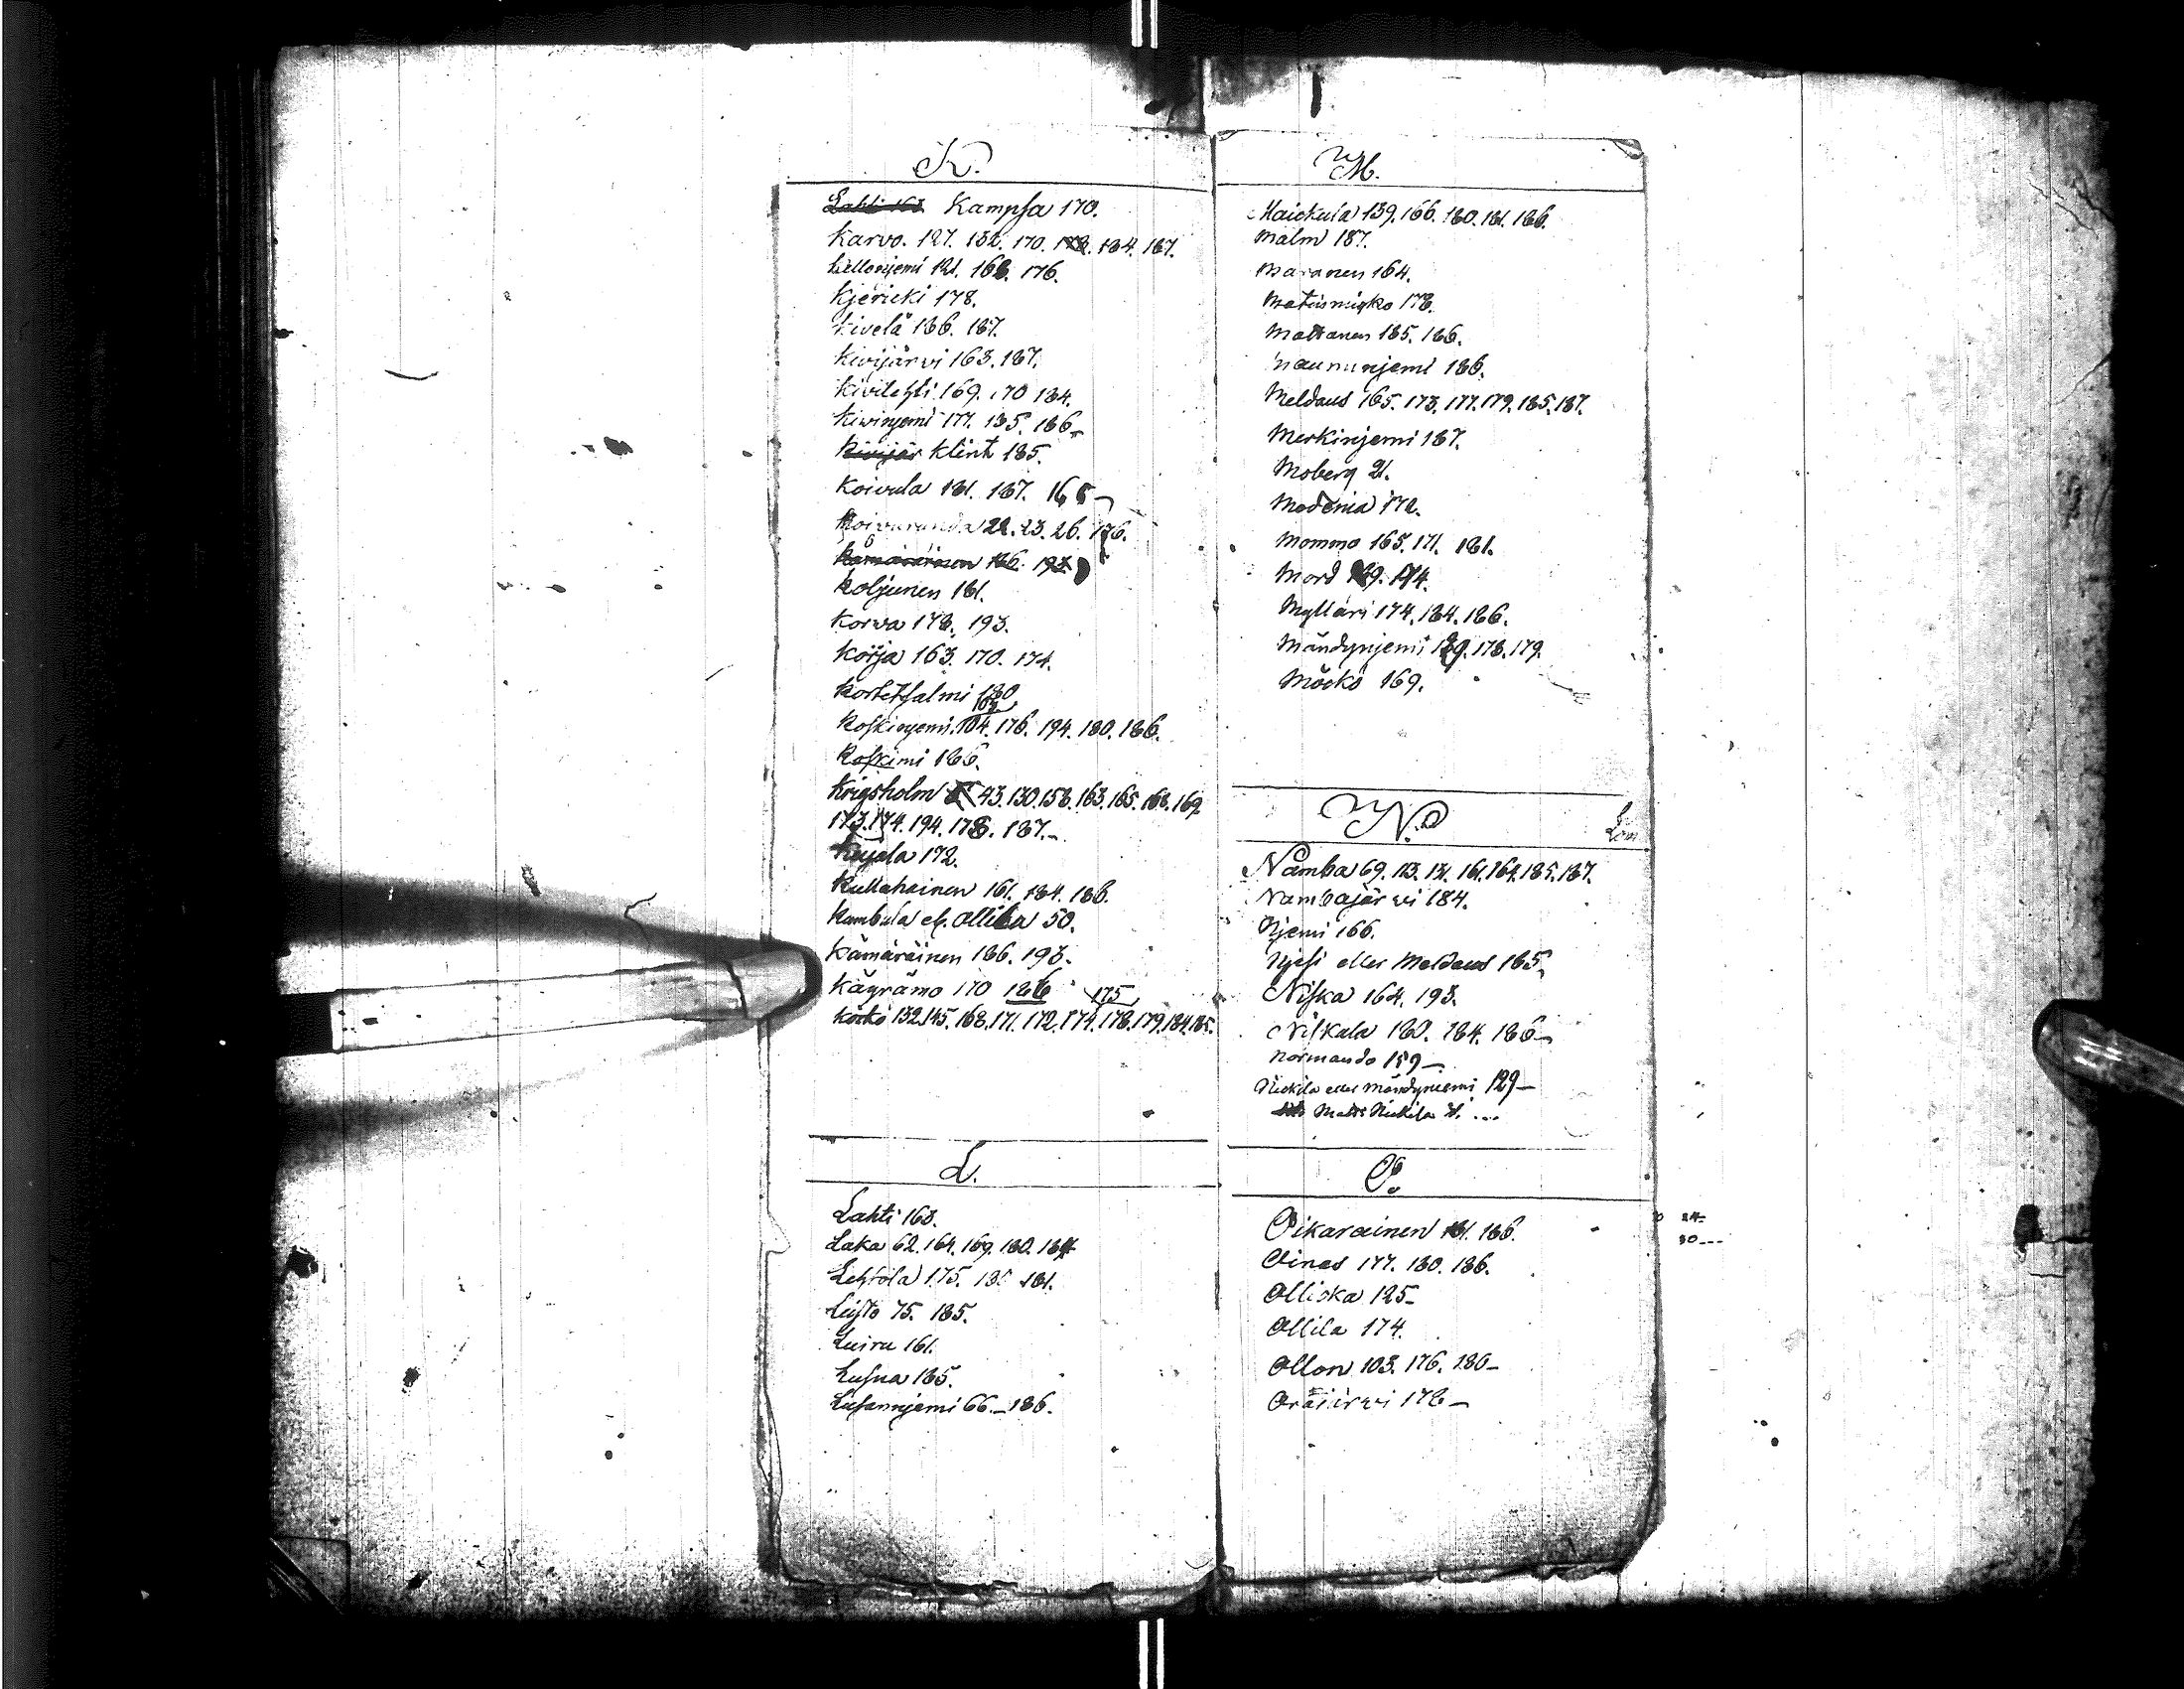 K.
Lahti 163 Kampsa 170.
Karvo. 127. 132. 170. 178. 184. 187.
Kellonjemi 121. 168. 176.
Kjericki 178.
Kivelä 186. 187.
Kivijärvi 163. 187.
Kivilehti 169. 170 184.
Kivinjemi 177. 185. 186
Kivijär Klint 185.
Koivula 181. 187. 165
Koivuranda 22. 23. 26. 176.
Kämäräinen 186. 193.
Koljunen 161.
Korva 178. 193.
Korja 163. 170. 174.
Kortetsalmi 180
103.
Koskinjemi. 104. 176. 194. 180. 186.
Koskimi 186.
Krigsholm 43. 130. 158. 163. 165. 168. 169.
173. 174. 194. 178. 187.
Kujala 172.
Kullahainen 161. 184. 186.
Kumbula el. Ollila 50.
Kämäräinen 186. 193.
Käyrämo 170 186 175
Köckö 132. 145. 168. 171. 172. 174. 178. 179. 184. 185.
L.
Lahti 163.
Laka 62. 164. 169. 180. 184
Lehtola 175. 180 181.
Leisto 75. 185.
Luiru 161.
Lusua 185.
Lusannjemi 66. 186.
M.
Maickula 139. 166. 180. 181. 186.
Malm 187.
Maranen 164.
178.
Mattanen 185. 186.
Maununjemi 186.
Meldaus 165. 173. 177. 179. 185. 187.
Meskinjemi 187.
Moberg 21.
Modenia 172.
Mommo 165. 171. 181.
Mord 174.
Mylläri 174. 184. 186.
Mändynjemi 129. 178. 179.
Möckö 169.
N.
Nämba 69. 113. 131. 161. 164. 185. 187.
Nambajärwi 184.
Njemi 166.
Njesi eller Meldaus 185.
Niska 164. 193.
Niskala 180. 184. 186
Normando 159
Nickila eller Mändyniemi 129
Matts Nickila
O.
Oikarainen 181. 186.
Oinas 177. 180. 186.
Olliska 125
Ollila 174.
Ollon 103. 176. 180
Oräjärwi 178